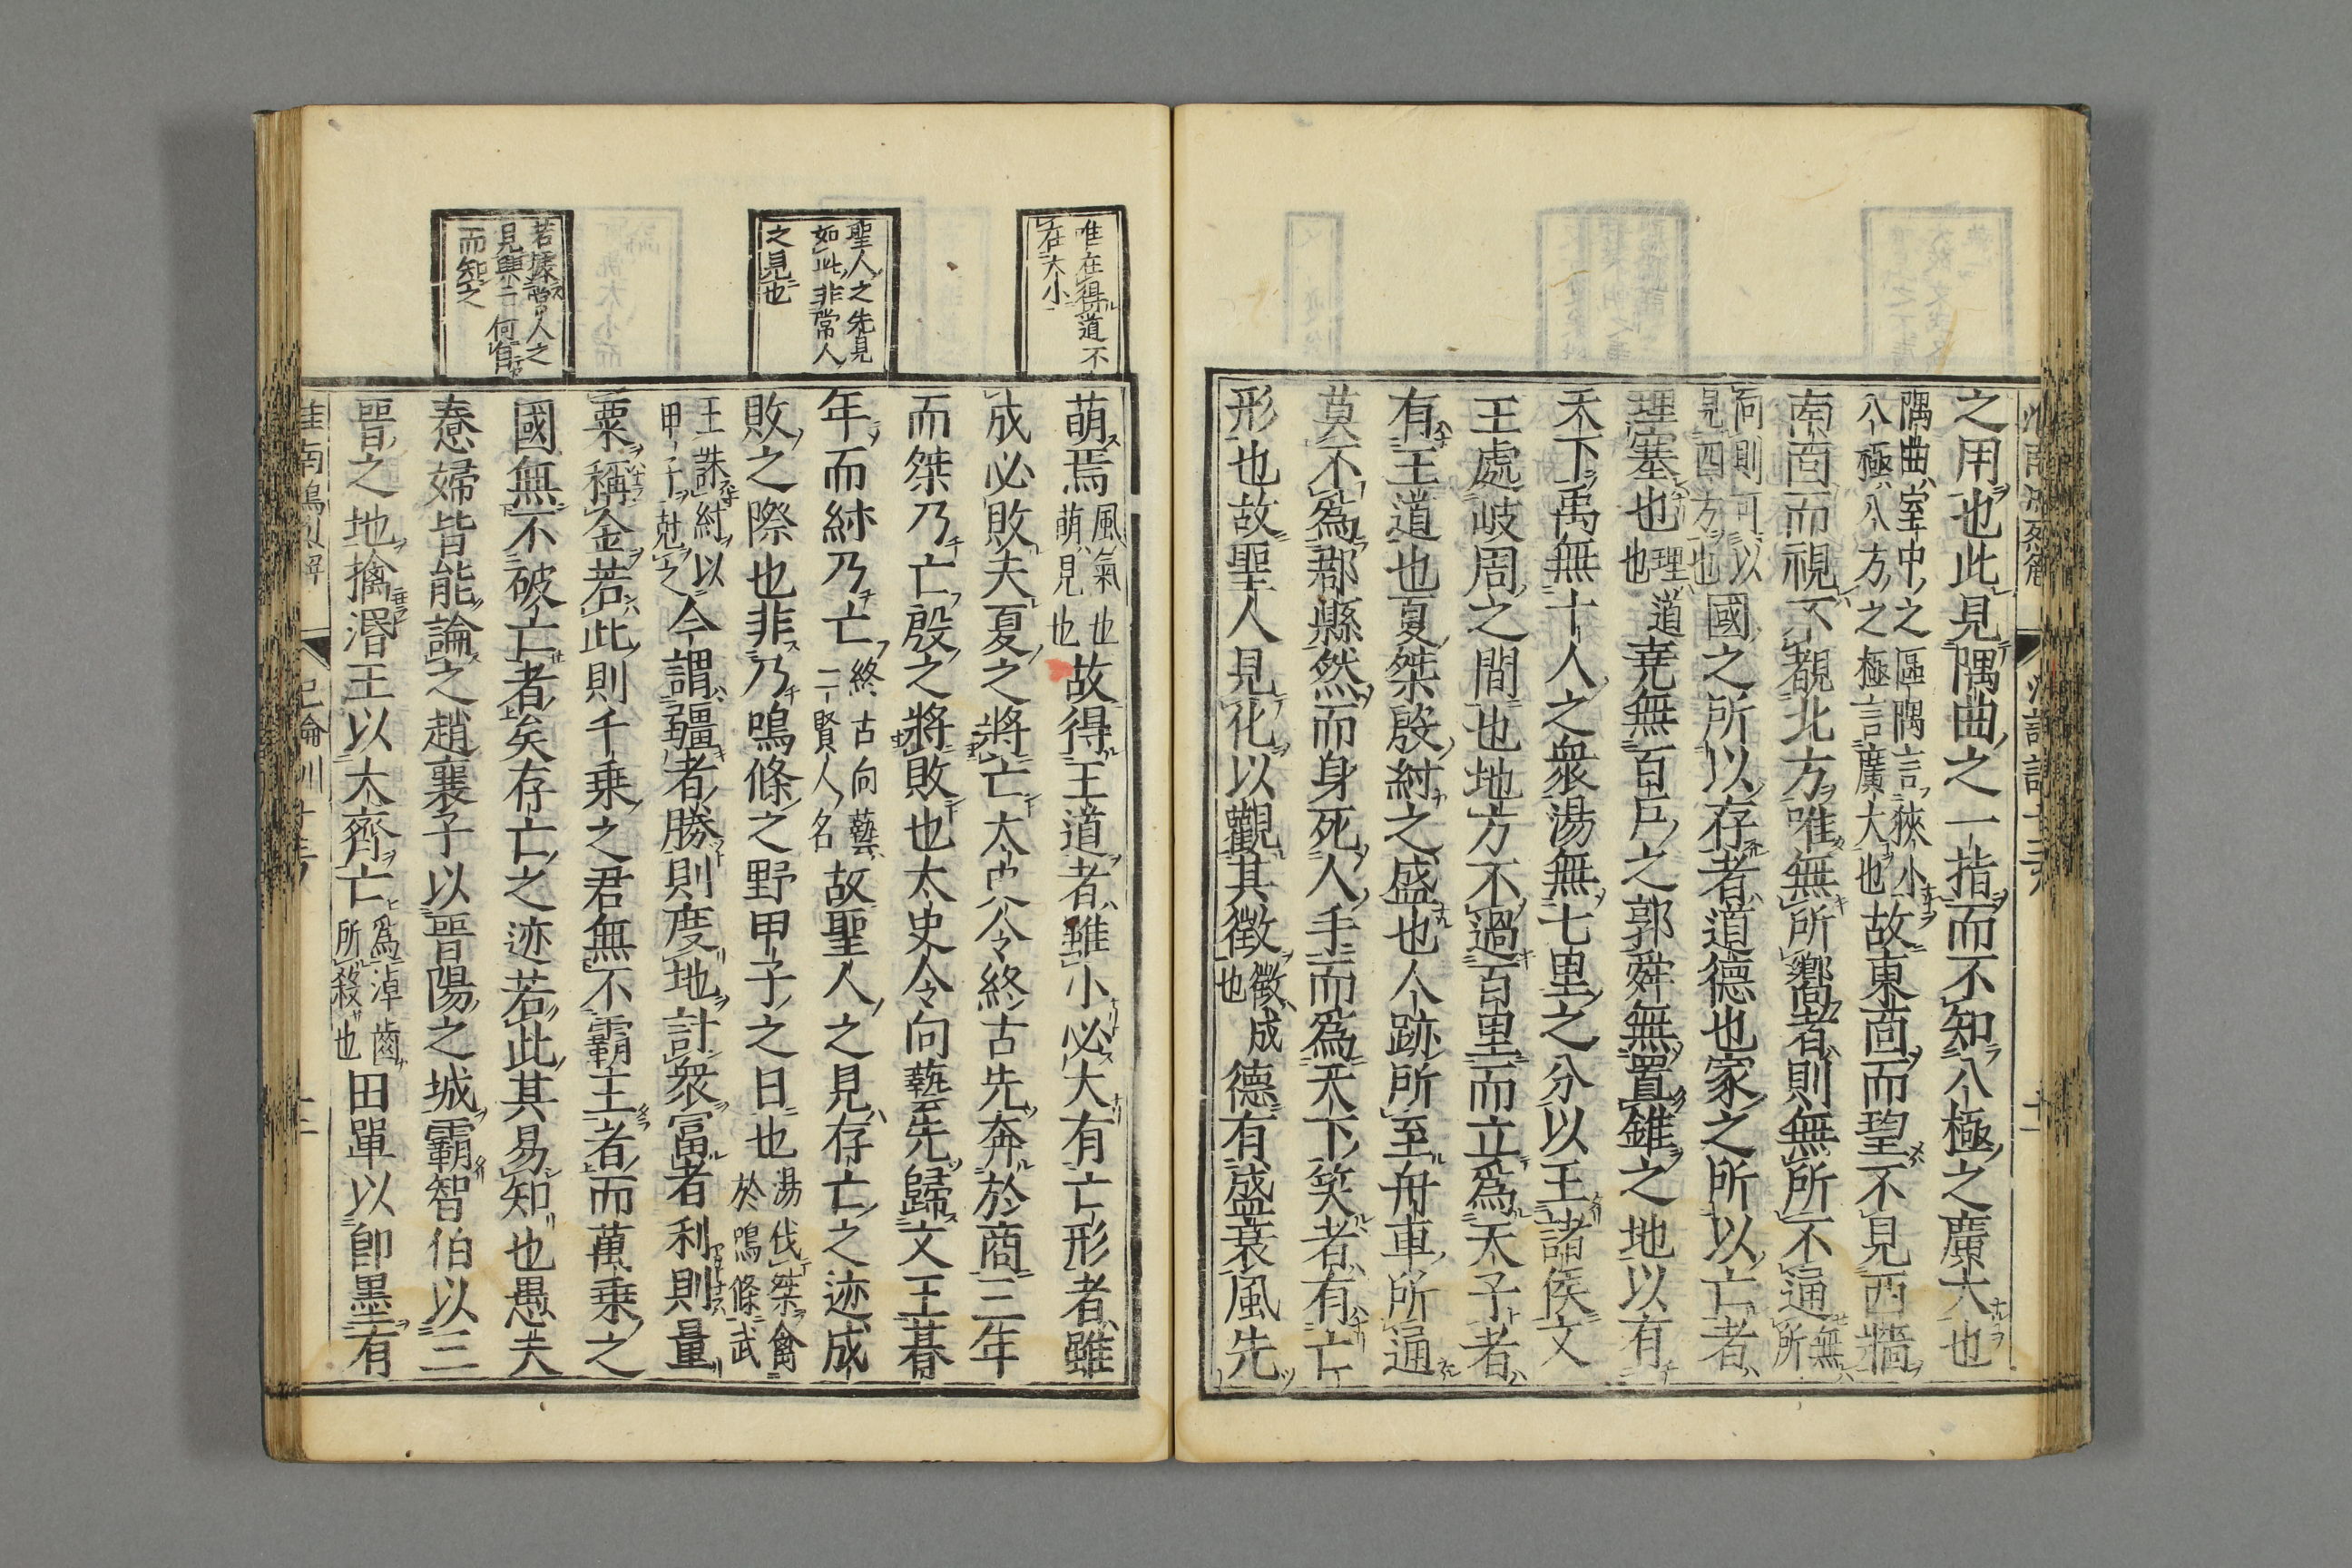 之用也此見隅曲之一指而不知八極之廣大也
隅曲室中之區隅言狹小
八極八方之極言廣大也
故東面而望不見西牆
南面而視不覩北方唯無所嚮者則無所不通
無所
向則可以
見四方也
國之所以存者道德也家之所以亡者
理塞也
理道
也
堯無百戶之郭舜無置錐之地以有
天下禹無十人之衆湯無七里之分以王諸侯文
王處岐周之間也地方不過百里而立爲天子者
有王道也夏桀殷紂之盛也人跡所至舟車所通
莫不爲郡縣然而身死人手而爲天下笑者有亡
形也故聖人見化以觀其徵
徵成
也
德有盛衰風先
唯在得道不
在大小
聖人之先見
如此非常人
之見也
見與 何自
而知之
萌焉
風氣也
萌見也
故得王道者雖小必大有亡形者雖
成必敗夫夏之將亡太史令終古先奔於商三年
而桀乃亡殷之將敗也太史令向藝先歸文王朞
年而紂乃亡
終古向藝
二賢人名
故聖人之見存亡之迹成
敗之際也非乃鳴條之野甲子之日也
湯伐桀禽
於鳴條武
王誅紂以
甲子尅之
今謂疆者勝則度地計衆富者利則量
粟稱金若此則千乗之君無不霸王者而萬乗之
國無不破亡者矣存亡之迹若此其易知也愚夫
惷婦皆能論之趙襄子以晉陽之城霸智伯以三
晉之地擒湣王以大齊亡
爲淖齒
所殺也
田單以卽墨有